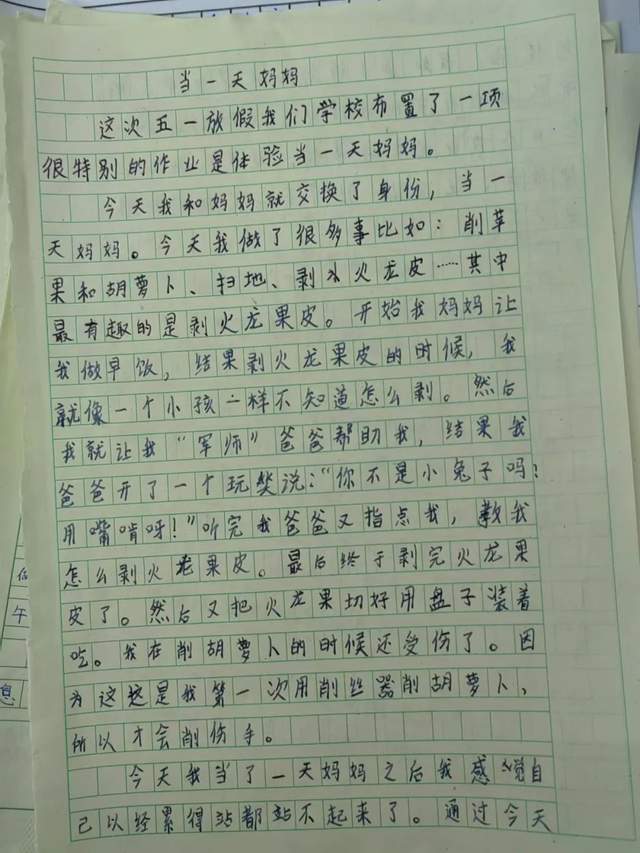 当一天妈妈
这次五一放假我们学校布置了一项
很特别的作业是体验当一天妈妈。
今天我和妈妈就交换了身份，当一
天妈妈。今天我做了很多事比如：削苹
果和胡萝卜、扫地、剥火龙皮……其中
最有趣的是剥火龙果皮。开始我妈妈让
我做早饭，结果剥火龙果皮的时候，我
就像一个小孩一样不知道怎么剥。然后
我就让我“军师”爸爸帮助我，结果我
爸爸开了一个玩笑说：“你不是小兔子吗！
用嘴啃呀！”听完我爸爸又指点我，教我
怎么剥火龙果皮。最后终于剥完火龙果
皮了。然后又把火龙果切好用盘子装着
吃。我在削胡萝卜的时候还受伤了。因
为这是我第一次用削丝器削胡萝卜、
所以才会削伤手。
今天我当了一天妈妈之后我感觉自
己以经累得站都站不起来了。通过今天
午
息